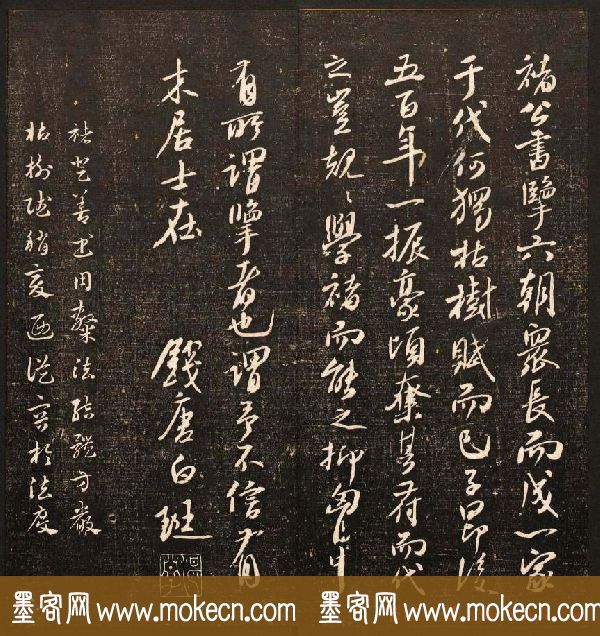 褚公書擥六朝眾長而成一家
于代何獨枯樹賦而已子昂後
五百年一振豪頃奪其府而代
之豈規〻學褚而能之抑胸中
有所謂擥者也謂予不信有
木居士在
錢唐白珽
褚登善書用隸法結體方嚴
枯樹賦稍變通從容於法度
墨客网 www.mokecn.com 墨客网 www.mokecn.com